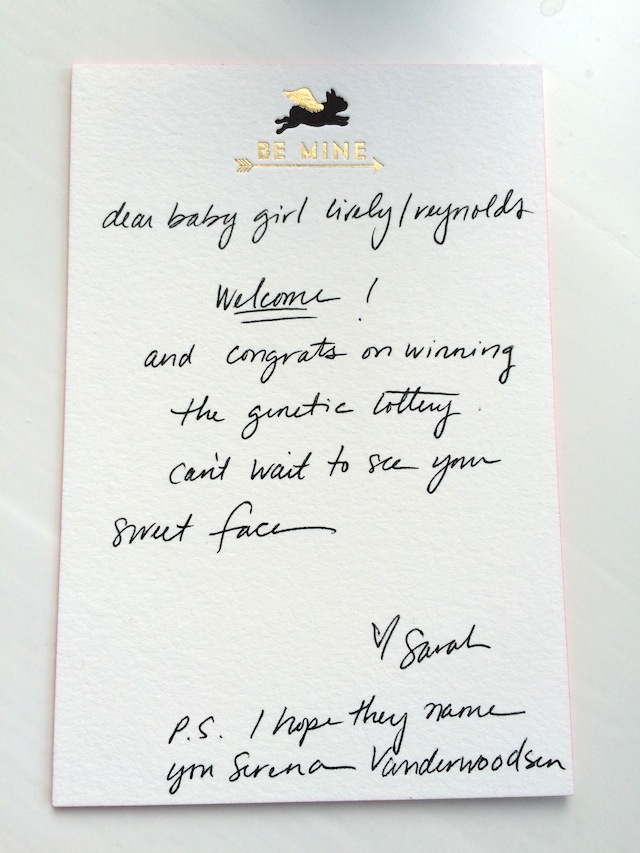 BE MINE
dear baby girl lively/reynolds
Welcome!
and congrats on winning
the genetic lottery.
can't wait to see your
sweet face
♡ Sarah
P.S. I hope they name
you Serena Vanderwoodsen